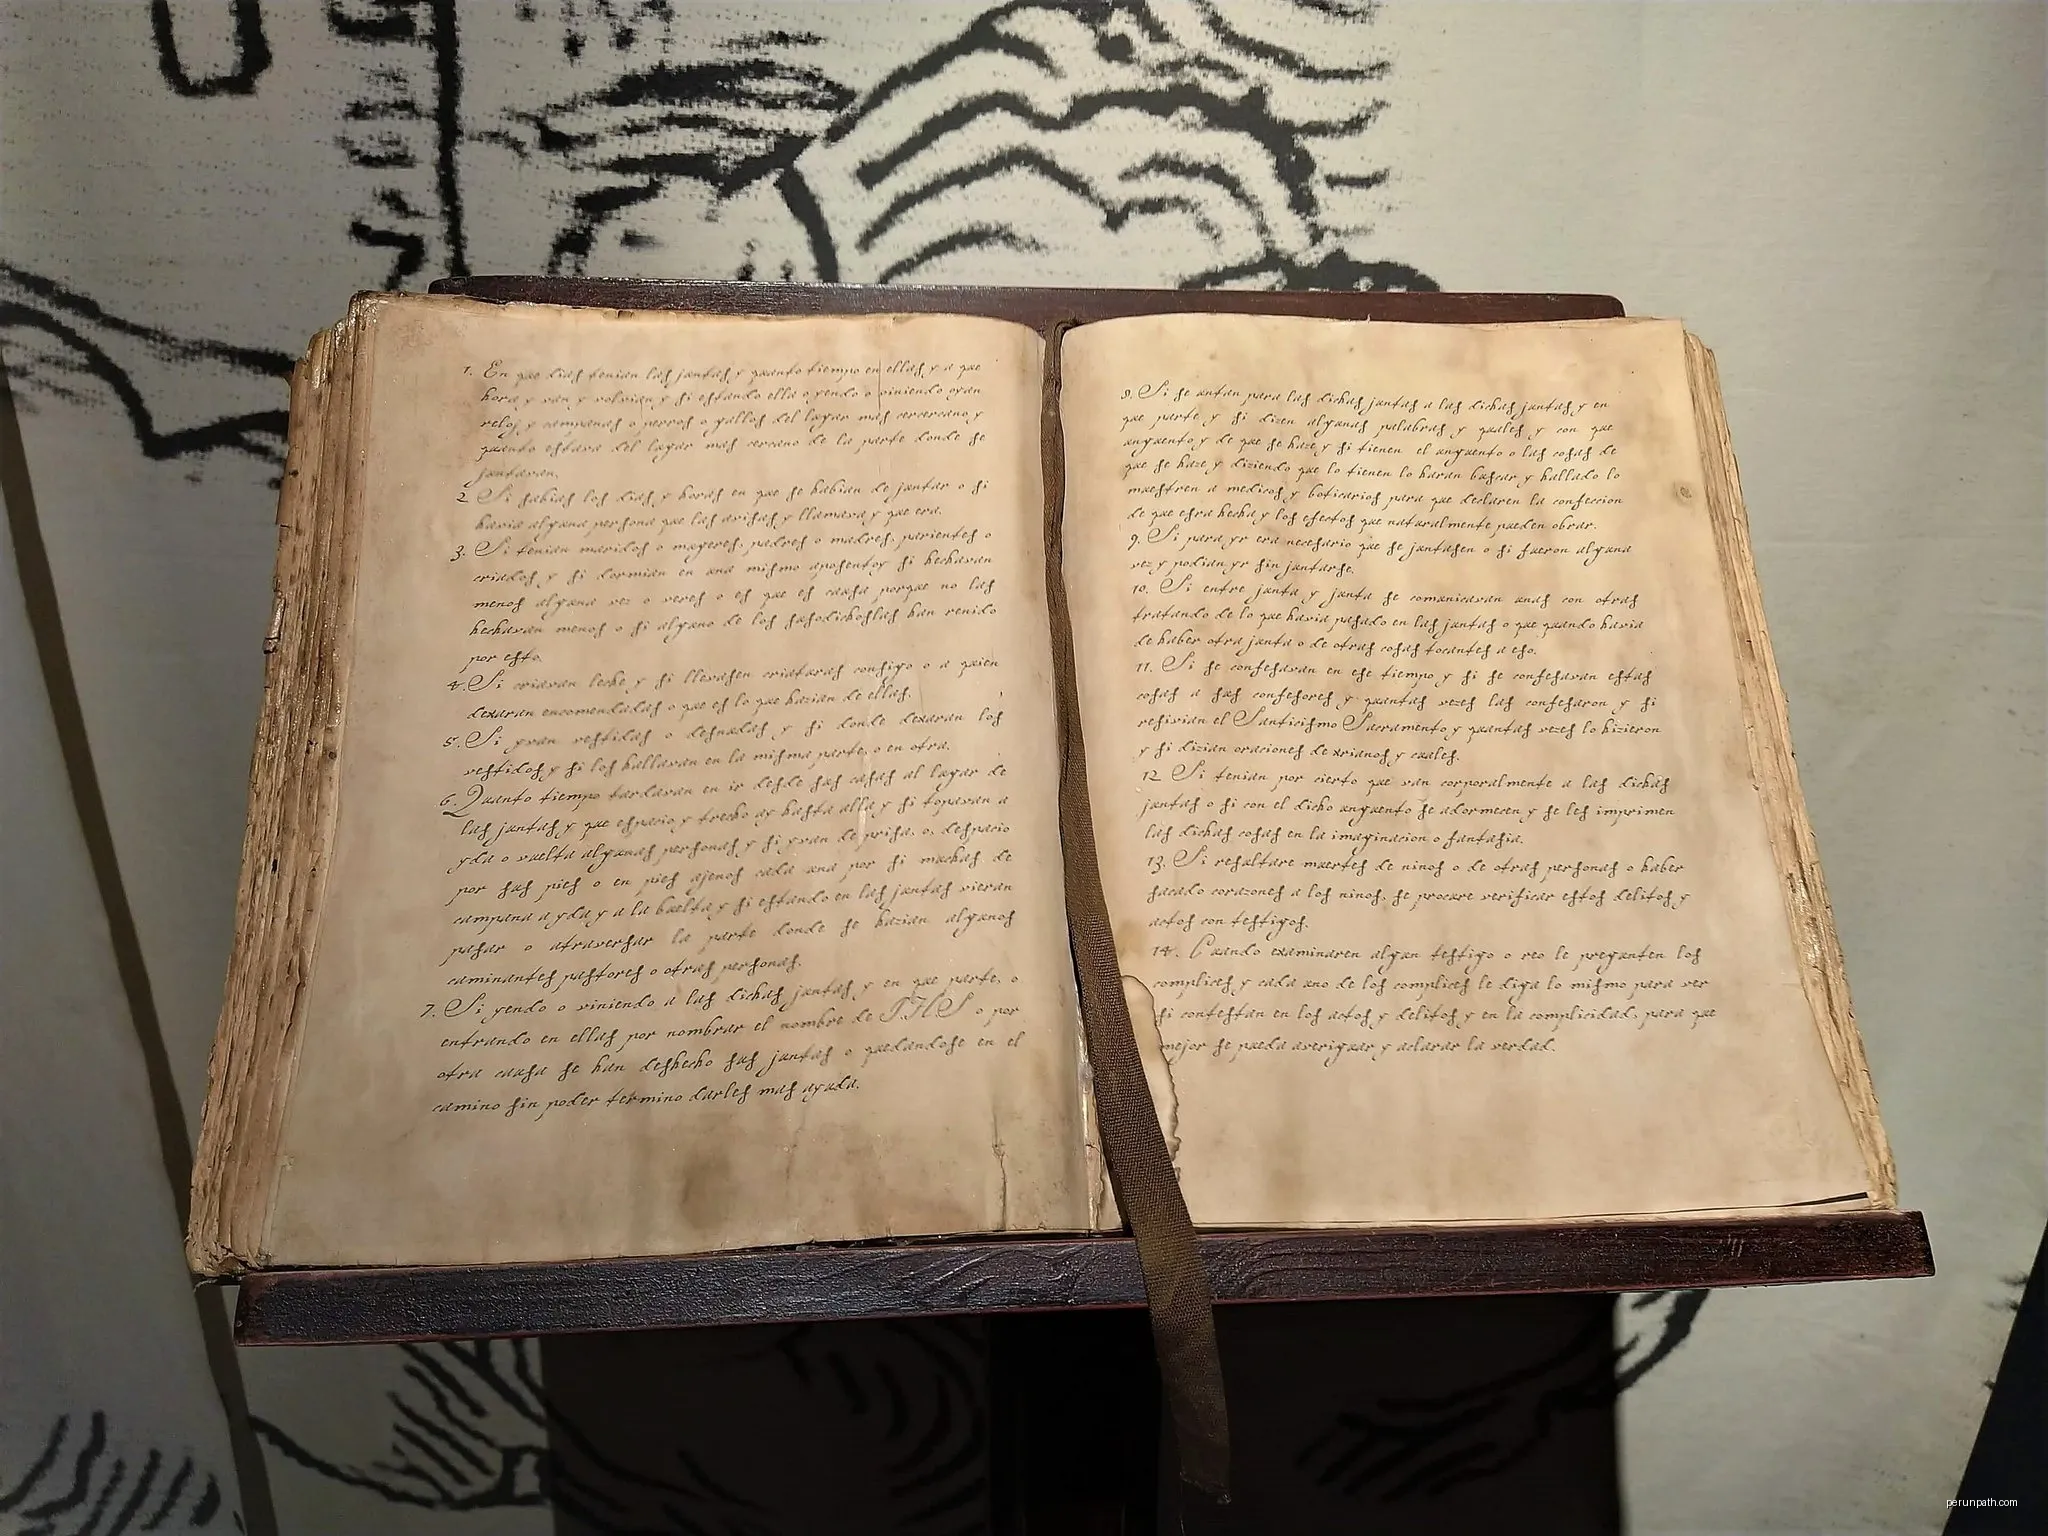 1. En que dias tenian las juntas y quanto tiempo en ellas y a que
hora y van y volvian y si estando ella o yendo o viniendo oyan
reloj y campanas o perros o gallos del lugar mas cercano y
quanto estava del lugar mas cercano de la parte donde se
juntavan.
2 Si sabias los dias y horas en que se habian de juntar o si
havia alguna persona que las avisas y llamava y que era.
3. Si tenian maridos o mugeres, padres o madres, parientes o
criados y si dormian en una mismo aposento y si hechavan
menos alguna vez o veres o es que es causa porque no las
hechavan menos o si alguno de los susodichos las han renido
por esto.
4. Si criavan leche y si llevasen criaturas consigo o a quien
dexaran encomendadas o que es lo que hazian de ellas.
5. Si yvan vestidas o desnudas y si donde dexaran los
vestidos y si los hallavan en la misma parte, o en otra.
6. Quanto tiempo tardavan en ir desde sus casas al lugar de
las juntas y que espacio y trecho ay hasta alla y si topavan a
yda o vuelta algunas personas y si yvan de prisa, o, despacio
por sus pies o en pies ajenos cada una por si muchas de
campana a yda y a la buelta y si estando en las juntas vieran
pasar o atraversar la parte donde se hazian algunos
caminantes pastores o otras personas.
7. Si yendo o viniendo a las dichas juntas y en que parte, o
entrando en ellas por nombrar el nombre de J.H.S o por
otra causa se han deshecho sus juntas o quedandose en el
camino sin poder termino darles mas ayuda.
8. Si se untan para las dichas juntas a las dichas juntas y en
que parte y si dizen algunas palabras y quales y con que
unguento y de que se haze y si tienen el unguento o las cosas de
que se haze y diziendo que lo tienen lo haran buscar y hallado lo
muestren a medicos y boticarios para que declaren la confeccion
de que esra hecha y los efectos que naturalmente pueden obrar.
9. Si para yr era necesario que se juntasen o si fueron alguna
vez y podian yr sin juntarse.
10. Si entre junta y junta se comunicavan unas con otras
tratando de lo que havia pasado en las juntas o que quando havia
de haber otra junta o de otras cosas tocantes a eso.
11. Si se confesavan en ese tiempo y si se confesavan estas
cosas a sus confesores y quantas vezes las confesaron y si
resivian el Santicismo Sacramento y quantas vezes lo hizieron
y si dizian oraciones de xrianos y cuales.
12 Si tenian por cierto que van corporalmente a las dichas
juntas o si con el dicho unguento se adormecen y se les imprimen
las dichas cosas en la imaginacion o fantasia.
13. Si resaltare muertes de ninos o de otras personas o haber
sacado corazones a los ninos, se procure verificar estos delitos y
actos con testigos.
14. Cuando examinaren algun testigo o reo le pregunten los
complices y cada uno de los complices le diga lo mismo para ver
si contestan en los actos y delitos y en la complicidad, para que
mejor se pueda averiguar y aclarar la verdad.
perunpath.com